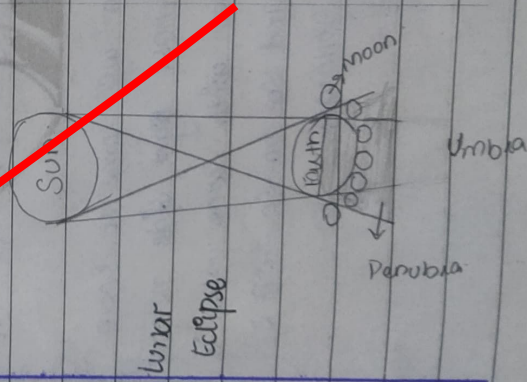 Sun
Earth
moon
Umbra
Penubra
Lunar
Eclipse